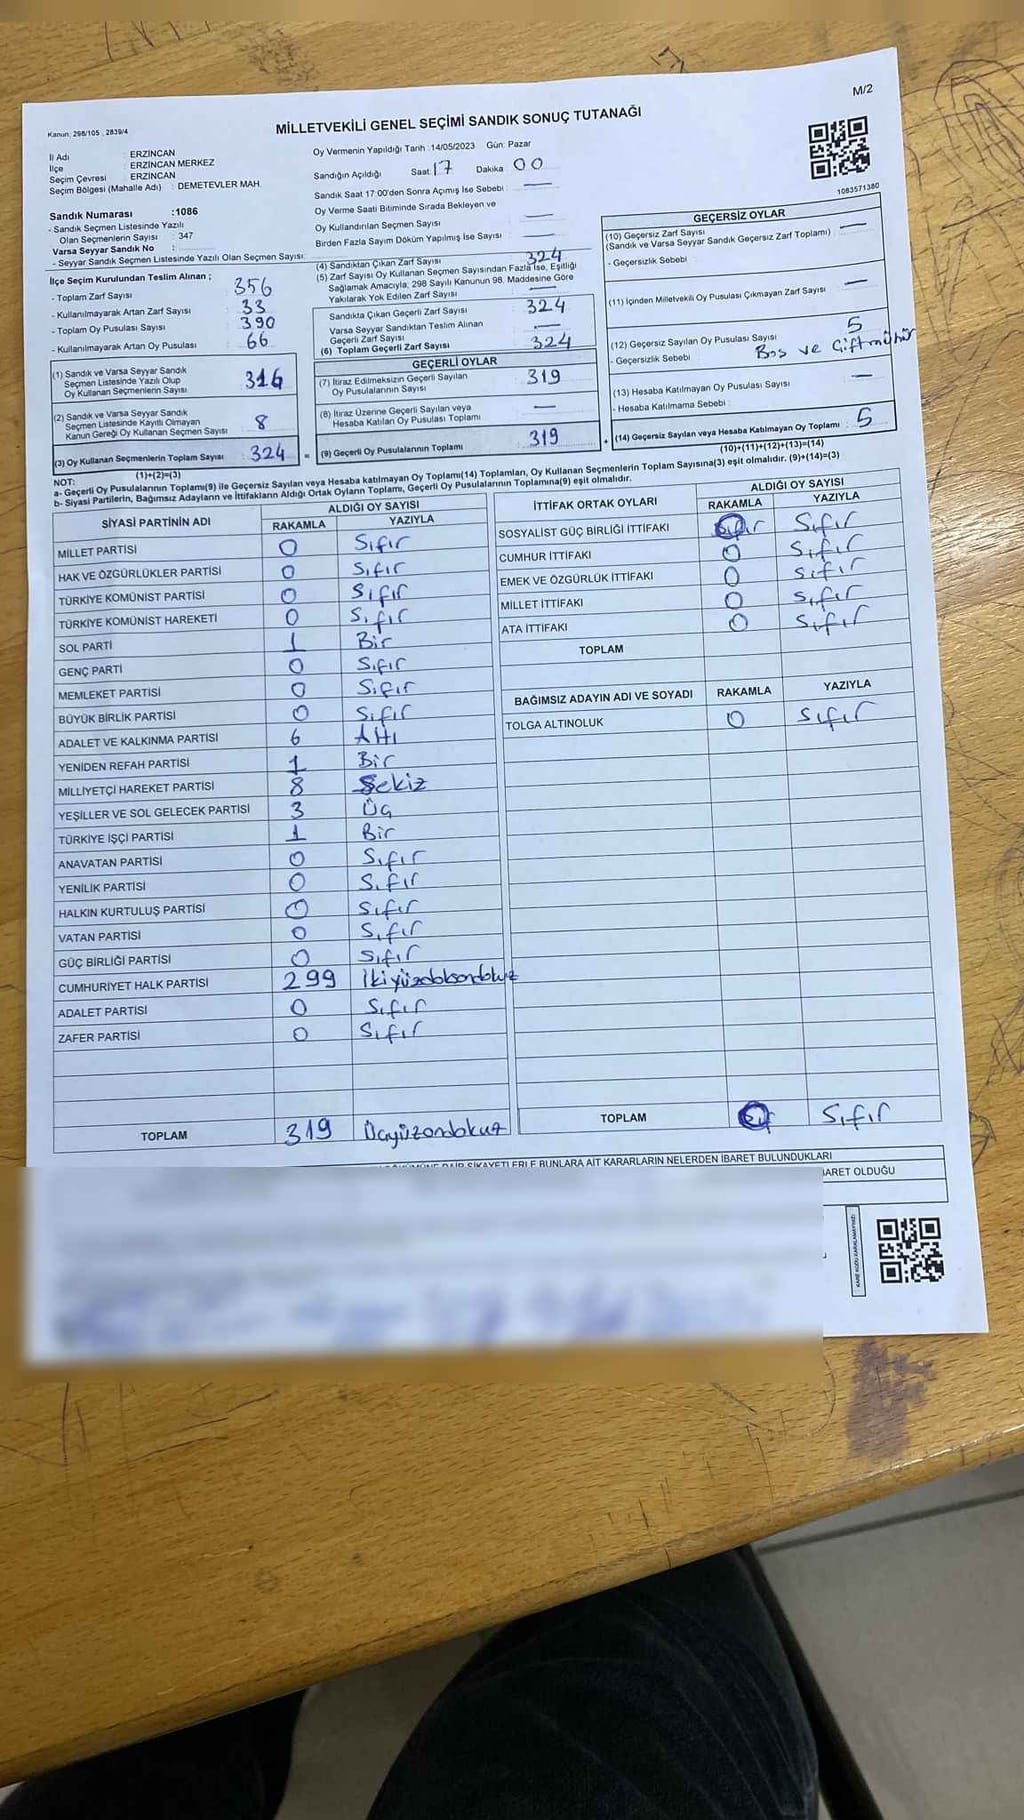 M/2
Kanun: 298/105 , 2839/4
MİLLETVEKİLİ GENEL SEÇİMİ SANDIK SONUÇ TUTANAĞI
İl Adı : ERZİNCAN
İlçe : ERZİNCAN MERKEZ
Seçim Çevresi : ERZİNCAN
Seçim Bölgesi (Mahalle Adı) : DEMETEVLER MAH.
Sandık Numarası :1086
- Sandık Seçmen Listesinde Yazılı
Olan Seçmenlerin Sayısı : 347
Varsa Seyyar Sandık No :
- Seyyar Sandık Seçmen Listesinde Yazılı Olan Seçmen Sayısı:
Oy Vermenin Yapıldığı Tarih :14/05/2023 Gün: Pazar
Sandığın Açıldığı Saat: 17 Dakika 00
Sandık Saat 17:00'den Sonra Açımış İse Sebebi : —
Oy Verme Saati Bitiminde Sırada Bekleyen ve
Oy Kullandırılan Seçmen Sayısı —
Birden Fazla Sayım Döküm Yapılmış İse Sayısı —
1083571380
İlçe Seçim Kurulundan Teslim Alınan ;
- Toplam Zarf Sayısı 356
- Kullanılmayarak Artan Zarf Sayısı 33
- Toplam Oy Pusulası Sayısı 390
- Kullanılmayarak Artan Oy Pusulası 66
(1) Sandık ve Varsa Seyyar Sandık
Seçmen Listesinde Yazılı Olup
Oy Kullanan Seçmenlerin Sayısı 316
(2) Sandık ve Varsa Seyyar Sandık
Seçmen Listesinde Kayıtlı Olmayan
Kanun Gereği Oy Kullanan Seçmen Sayısı 8
(3) Oy Kullanan Seçmenlerin Toplam Sayısı 324
(1)+(2)=(3)
(4) Sandıktan Çıkan Zarf Sayısı 324
(5) Zarf Sayısı Oy Kullanan Seçmen Sayısından Fazla İse, Eşitliği
Sağlamak Amacıyla, 298 Sayılı Kanunun 98. Maddesine Göre
Yakılarak Yok Edilen Zarf Sayısı —
Sandıkta Çıkan Geçerli Zarf Sayısı 324
Varsa Seyyar Sandıktan Teslim Alınan
Geçerli Zarf Sayısı —
(6) Toplam Geçerli Zarf Sayısı 324
GEÇERLİ OYLAR
(7) İtiraz Edilmeksizin Geçerli Sayılan
Oy Pusulalarının Sayısı 319
(8) İtiraz Üzerine Geçerli Sayılan veya
Hesaba Katılan Oy Pusulası Toplamı —
= (9) Geçerli Oy Pusulalarının Toplamı 319
GEÇERSİZ OYLAR
(10) Geçersiz Zarf Sayısı —
(Sandık ve Varsa Seyyar Sandık Geçersiz Zarf Toplamı)
- Geçersizlik Sebebi
(11) İçinden Milletvekili Oy Pusulası Çıkmayan Zarf Sayısı —
(12) Geçersiz Sayılan Oy Pusulası Sayısı 5
- Geçersizlik Sebebi Boş ve Çift mühür
(13) Hesaba Katılmayan Oy Pusulası Sayısı —
- Hesaba Katılmama Sebebi :
+ (14) Geçersiz Sayılan veya Hesaba Katılmayan Oy Toplamı : 5
(10)+(11)+(12)+(13)=(14)
NOT:
a- Geçerli Oy Pusulalarının Toplamı(9) ile Geçersiz Sayılan veya Hesaba katılmayan Oy Toplamı(14) Toplamları, Oy Kullanan Seçmenlerin Toplam Sayısına(3) eşit olmalıdır. (9)+(14)=(3)
b- Siyasi Partilerin, Bağımsız Adayların ve İttifakların Aldığı Ortak Oyların Toplamı, Geçerli Oy Pusulalarının Toplamına(9) eşit olmalıdır.
SİYASİ PARTİNİN ADI ALDIĞI OY SAYISI
RAKAMLA YAZIYLA
MİLLET PARTİSİ 0 Sıfır
HAK VE ÖZGÜRLÜKLER PARTİSİ 0 Sıfır
TÜRKİYE KOMÜNİST PARTİSİ 0 Sıfır
TÜRKİYE KOMÜNİST HAREKETİ 0 Sıfır
SOL PARTİ 1 Bir
GENÇ PARTİ 0 Sıfır
MEMLEKET PARTİSİ 0 Sıfır
BÜYÜK BİRLİK PARTİSİ 0 Sıfır
ADALET VE KALKINMA PARTİSİ 6 Altı
YENİDEN REFAH PARTİSİ 1 Bir
MİLLİYETÇİ HAREKET PARTİSİ 8 Sekiz
YEŞİLLER VE SOL GELECEK PARTİSİ 3 Üç
TÜRKİYE İŞÇİ PARTİSİ 1 Bir
ANAVATAN PARTİSİ 0 Sıfır
YENİLİK PARTİSİ 0 Sıfır
HALKIN KURTULUŞ PARTİSİ 0 Sıfır
VATAN PARTİSİ 0 Sıfır
GÜÇ BİRLİĞİ PARTİSİ 0 Sıfır
CUMHURİYET HALK PARTİSİ 299 İkiyüzdoksandokuz
ADALET PARTİSİ 0 Sıfır
ZAFER PARTİSİ 0 Sıfır
TOPLAM 319 Üçyüzondokuz
İTTİFAK ORTAK OYLARI ALDIĞI OY SAYISI
RAKAMLA YAZIYLA
SOSYALİST GÜÇ BİRLİĞİ İTTİFAKI 0 Sıfır
CUMHUR İTTİFAKI 0 Sıfır
EMEK VE ÖZGÜRLÜK İTTİFAKI 0 Sıfır
MİLLET İTTİFAKI 0 Sıfır
ATA İTTİFAKI 0 Sıfır
TOPLAM
BAĞIMSIZ ADAYIN ADI VE SOYADI RAKAMLA YAZIYLA
TOLGA ALTINOLUK 0 Sıfır
TOPLAM 0 Sıfır
ŞİKAYETLERLE BUNLARA AİT KARARLARIN NELERDEN İBARET BULUNDUKLARI
İBARET OLDUĞU
KARE KODU KARALAMAYINIZ!